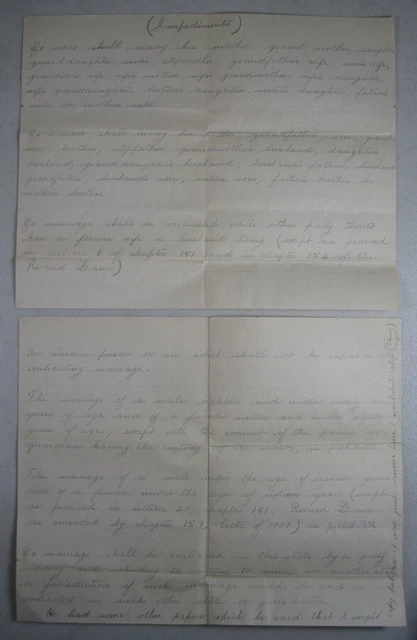 (Impediments.)
No man shall marry his mother, grand mother, daughter,
grand daughter, sister, stepmother, grandfather's wife, son's wife,
grandson's wife, wife's mother, wife's grandmother, wife's daughter,
wife's granddaughter, brother's daughter, sister's daughter, father's
sister or mother's sister.
No woman shall marry her father, grandfather, son, grand
son, brother, stepfather, grandmother's husband, daughter's
husband, granddaughter's husband, husband's father, husband's
grandfather, husband's son, sister's son, father's brother or
mother's brother.
No marriage shall be contracted while either party thereto
has a former wife or husband living (except as provided
in section 6 of chapter 151 and in chapter 152 of the
Revised Laws)
An insane person or an idiot shall not be capable of
contracting marriage.
The marriage of a male eighteen and under twenty one
years of age and of a female sixteen and under eighteen
years of age, except with the consent of the parent or
guardian having the custody of the minor, is prohibited.
The marriage of a male under the age of eighteen years
and of a female under the age of sixteen years (except
as provided in section 20 chapter 151, Revised Laws
as amended by chapter 159, Acts of 1902) is prohibited
No marriage shall be contracted in this state by a party
residing and intending to continue to reside in another state
or jurisdiction if such marriage would be void if
contracted in such other state or jurisdiction.
He had some other papers which he said that I might